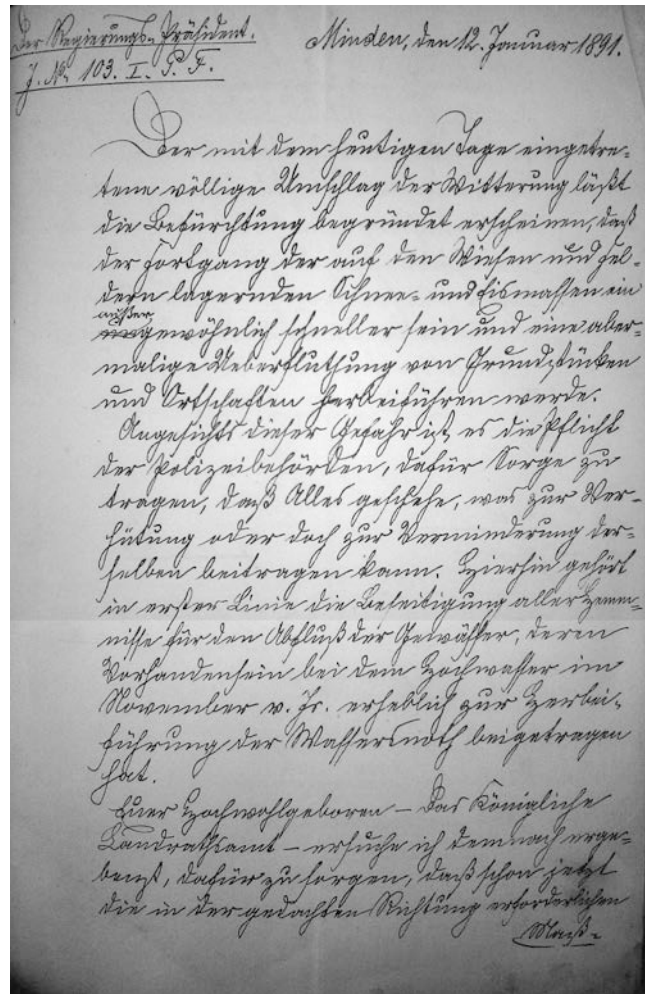 Der Regierungs-Präsident.
J. No. 103. I. P. F.
Minden, den 12. Januar 1891.
Der mit dem heutigen Tage eingetre-
tene völlige Umschlag der Witterung läßt
die Befürchtung begründet erscheinen, daß
der Fortgang der auf den Wiesen und Fel-
dern lagernden Schnee- und Eismassen ein
außer
ungewöhnlich schneller sein und eine aber-
malige Ueberfluthung von Grundstücken
und Ortschaften herbeiführen werde.
Angesichts dieser Gefahr ist es die Pflicht
der Polizeibehörden, dafür Sorge zu
tragen, daß Alles geschehe, was zur Ver-
hütung oder doch zur Verminderung der-
selben beitragen kann. Hierhin gehört
in erster Linie die Beseitigung aller Hemm-
nisse für den Abfluß der Gewässer, deren
Vorhandensein bei dem Hochwasser im
November v. Js. erheblich zur Herbei-
führung der Wassersnoth beigetragen
hat.
Euer Hochwohlgeboren – Das Königliche
Landrathsamt – ersuche ich demnach erge-
benst, dafür zu sorgen, daß schon jetzt
die in der gedachten Richtung erforderlichen
Maß-